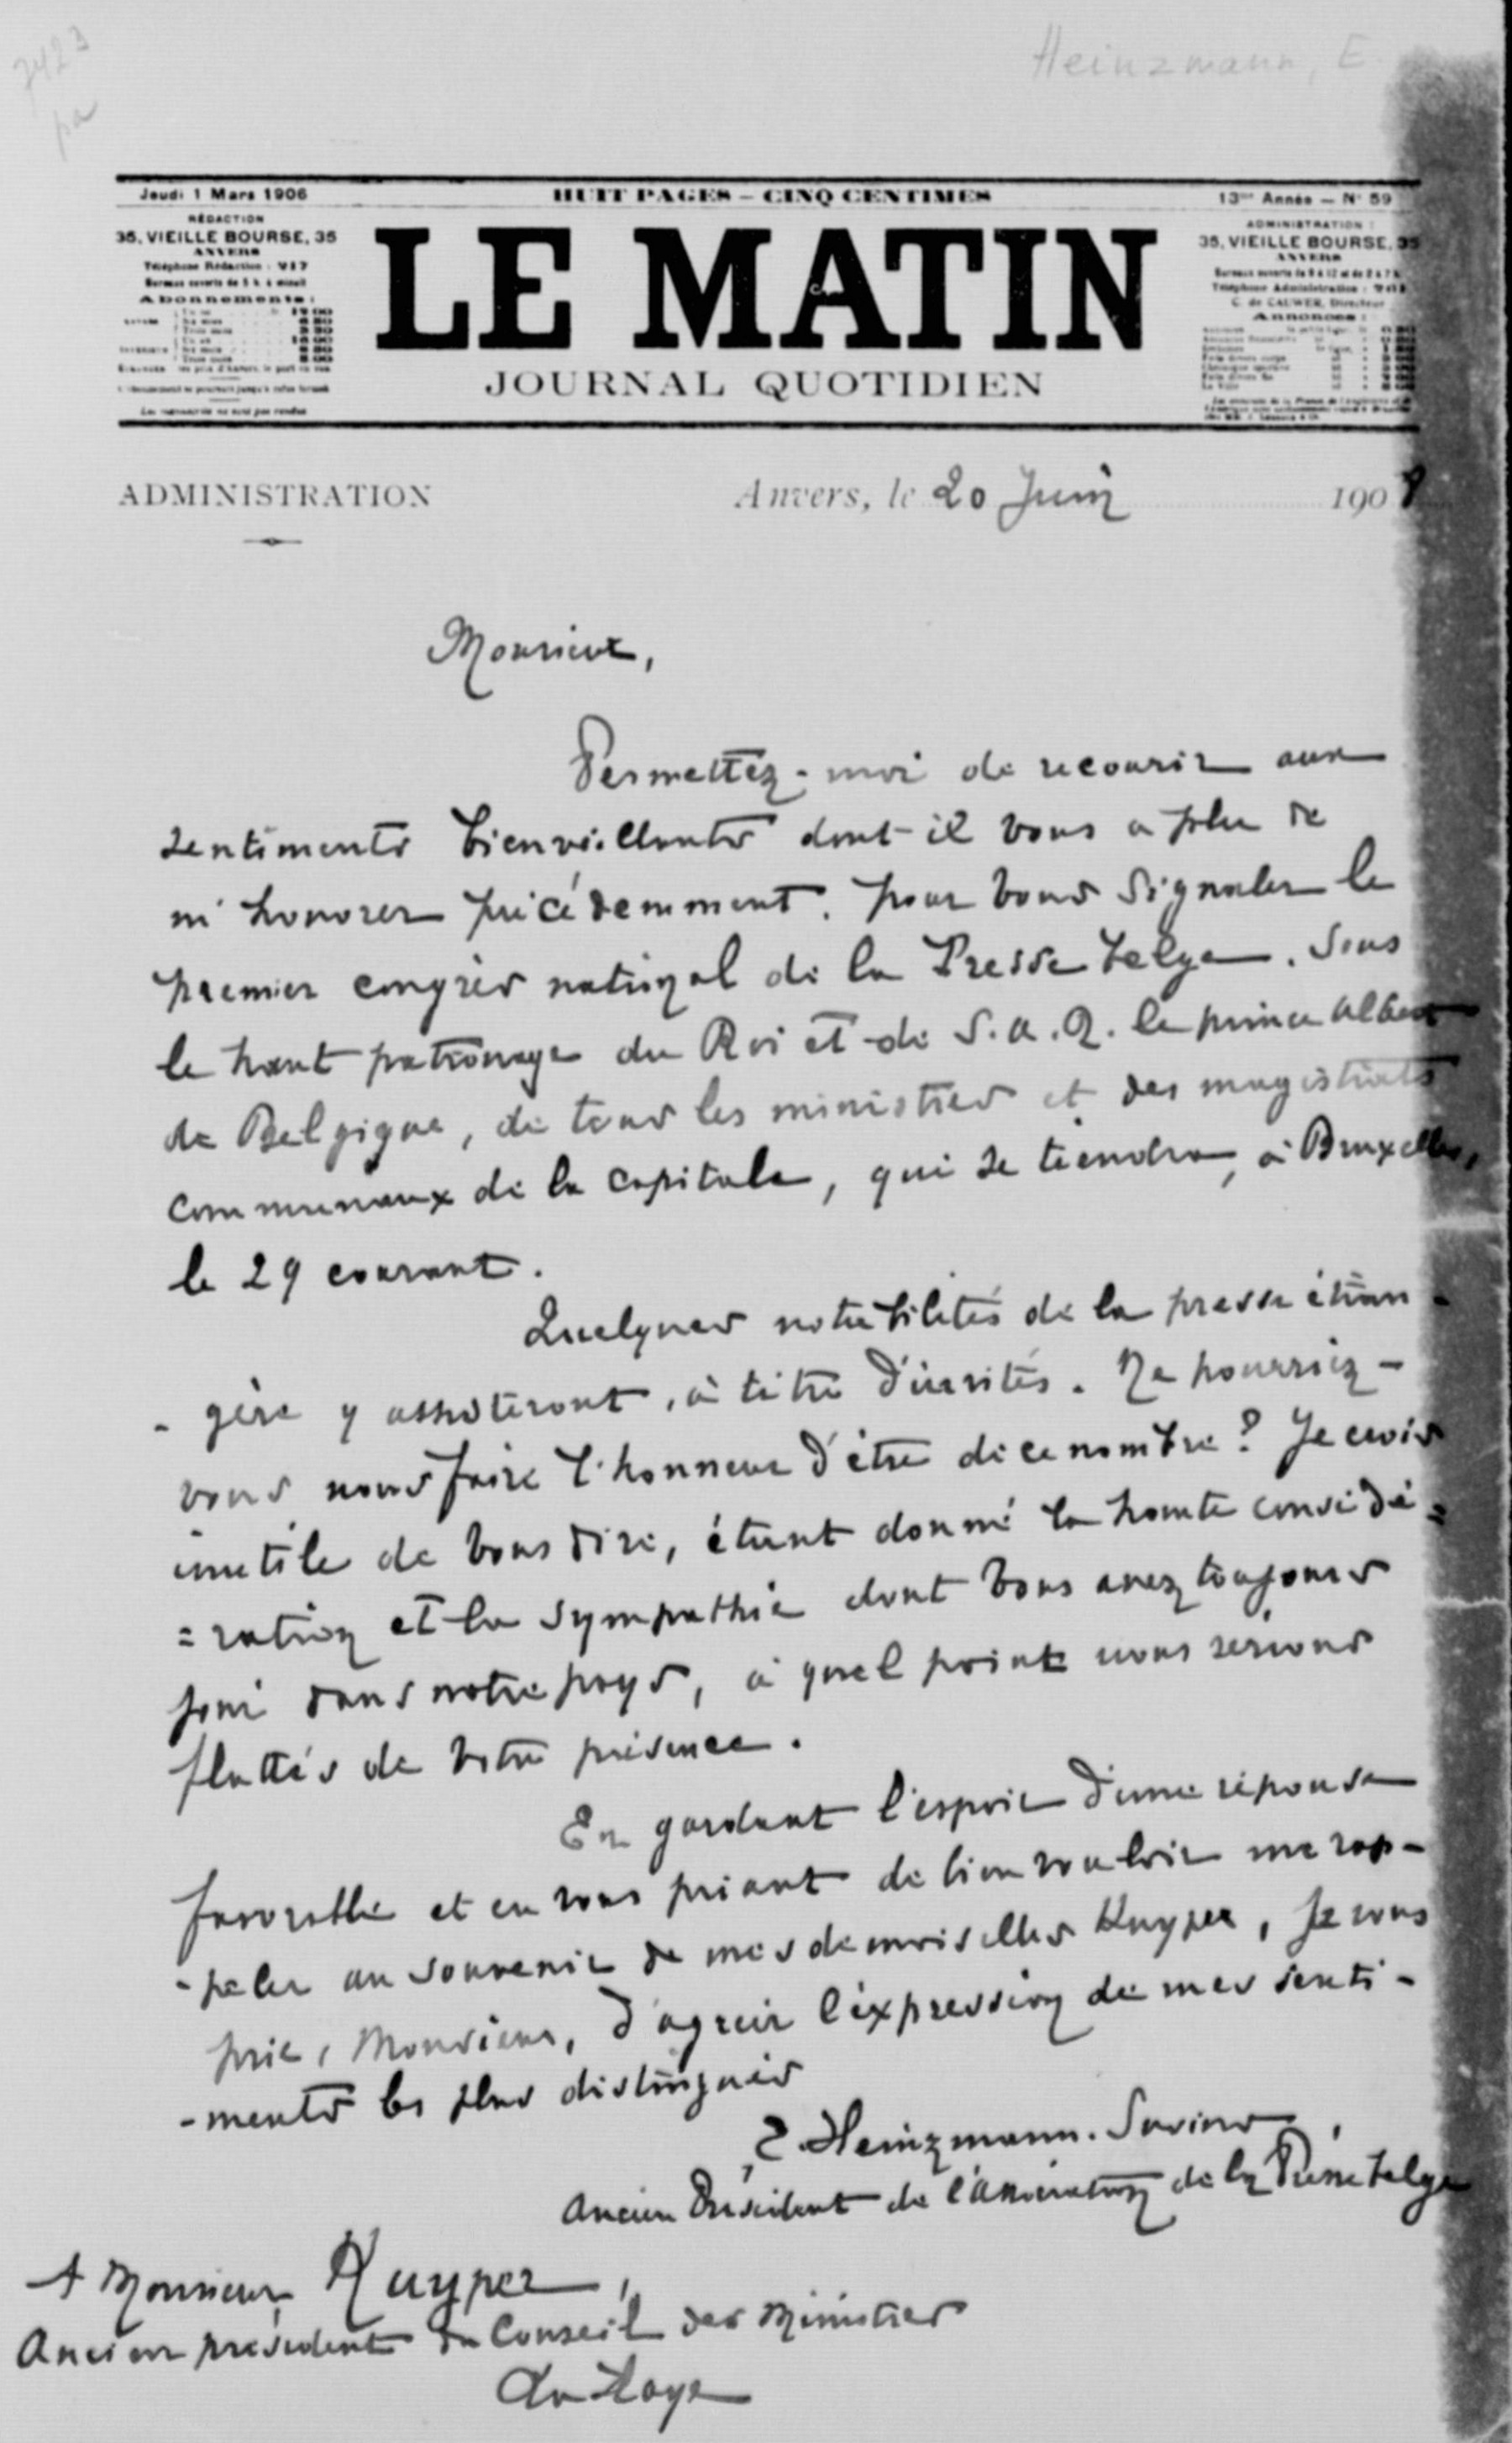 7423
pa
Heinzmann, E.
Jeudi 1 Mars 1906
HUIT PAGES – CINQ CENTIMES
13me Année – N° 59
RÉDACTION
35, VIEILLE BOURSE, 35
ANVERS
Téléphone Rédaction : 917
Bureaux ouverts de 5 h. à minuit
Abonnements :
LE MATIN
JOURNAL QUOTIDIEN
ADMINISTRATION :
35, VIEILLE BOURSE, 35
ANVERS
Téléphone Administration :
C. de CAUWER, Directeur
Annonces :
Les manuscrits ne sont pas rendus
ADMINISTRATION
Anvers, le 20 Juin 1908
Monsieur,
Permettez-moi de recourir aux
sentiments bienveillants dont il vous a plu de
m'honorer précédemment, pour vous signaler le
premier congrès national de la Presse belge, sous
le haut patronage du Roi et de S.A.R. le prince Albert
de Belgique, de tous les ministres et des magistrats
communaux de la capitale, qui se tiendra, à Bruxelles,
le 29 courant.
Quelques notabilités de la presse étran-
-gère y assisteront, à titre d'invités. Ne pourriez-
vous nous faire l'honneur d'être de ce nombre ? Je crois
inutile de vous dire, étant donné la haute considé=
=ration et la sympathie dont vous avez toujours
joui dans notre pays, à quel point nous serions
flattés de votre présence.
En gardant l'espoir d'une réponse
favorable et en vous priant de bien vouloir me rap-
-peler au souvenir de mesdemoiselles Kuyper, je vous
prie, Monsieur, d'agréer l'expression de mes senti-
-ments les plus distingués
E. Heinzmann-Savino,
Ancien Président de l'Association de la Presse belge
A Monsieur Kuyper,
Ancien président du Conseil des Ministres
La Haye